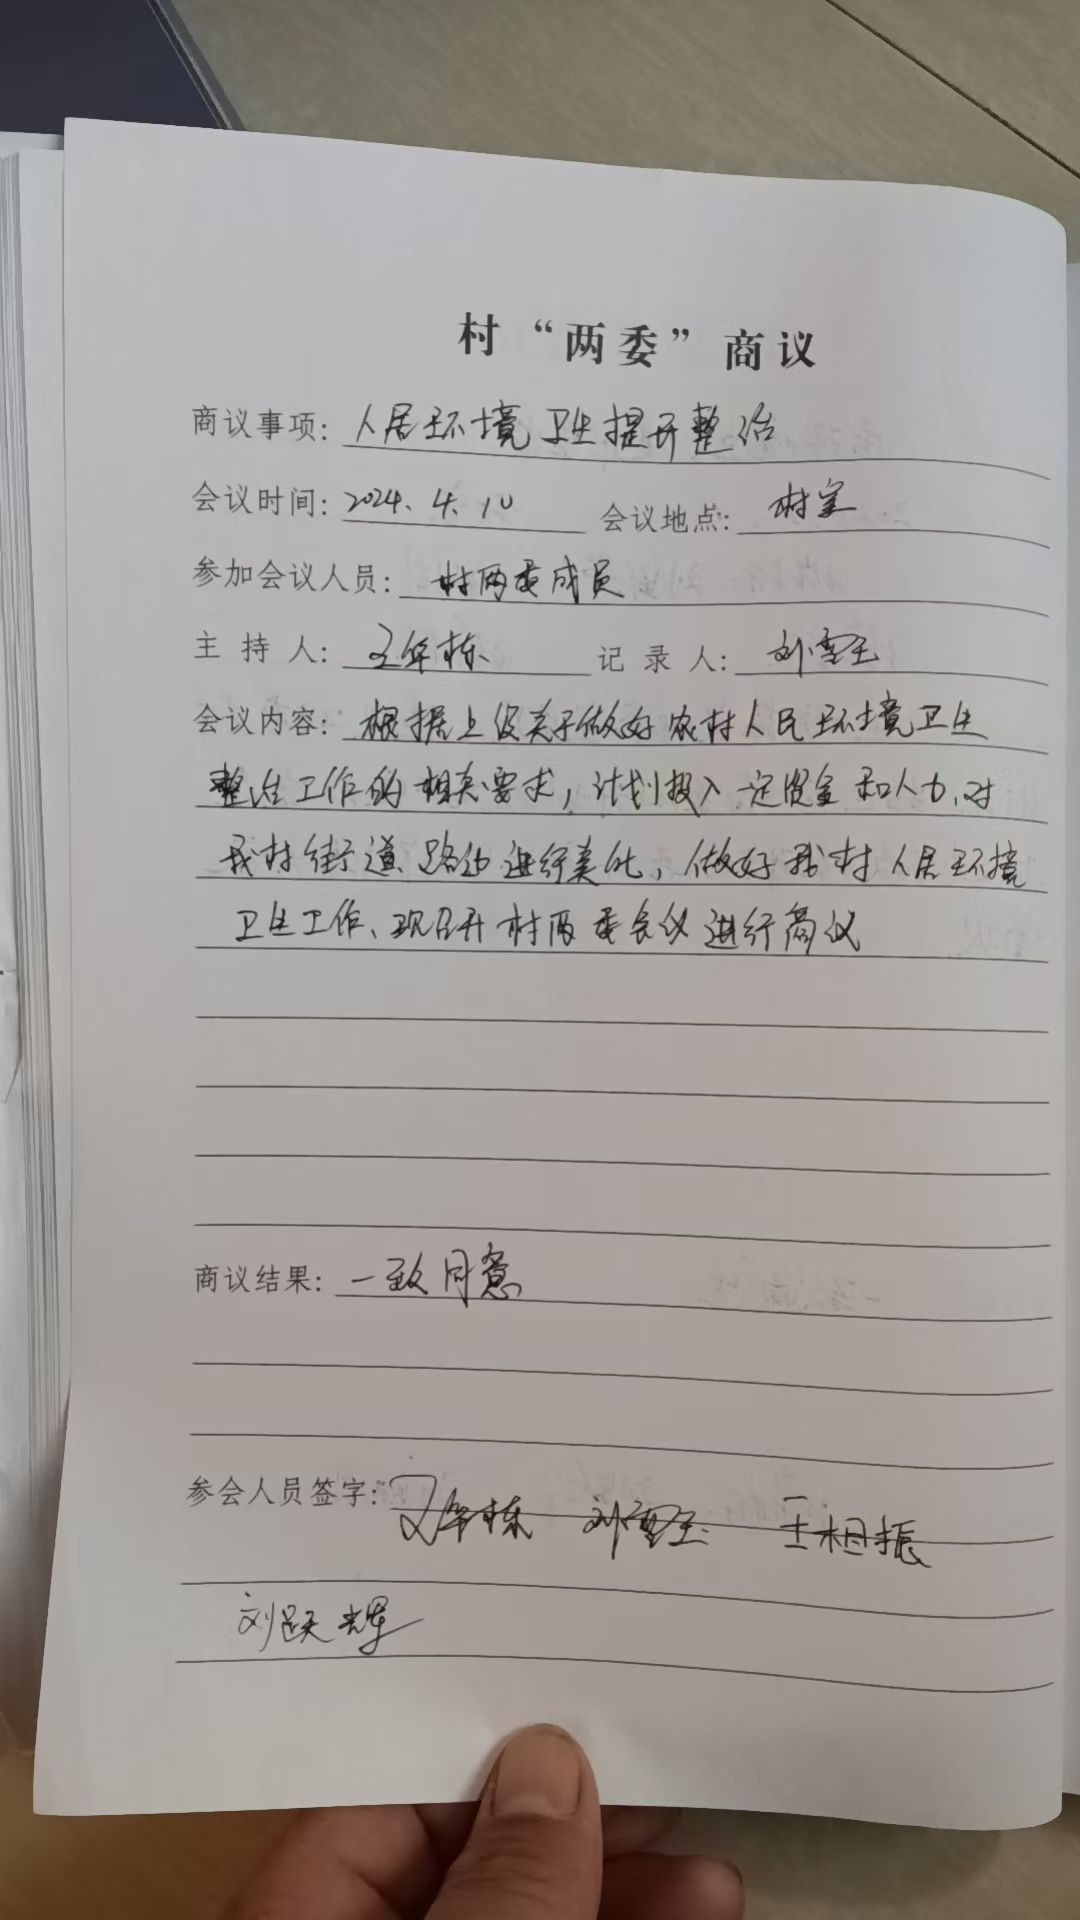 村“两委”商议
商议事项：人居环境卫生提升整治
会议时间：2024.4.10 会议地点：村室
参加会议人员：村两委成员
主持人：王年栋 记录人：刘雪玉
会议内容：根据上级关于做好农村人民环境卫生
整治工作的相关要求，计划投入一定资金和人力、对
我村街道、路边进行美化，做好我村人居环境
卫生工作、现召开村两委会议进行商议
商议结果：一致同意
参会人员签字：王年栋 刘雪玉 王相振
刘跃辉